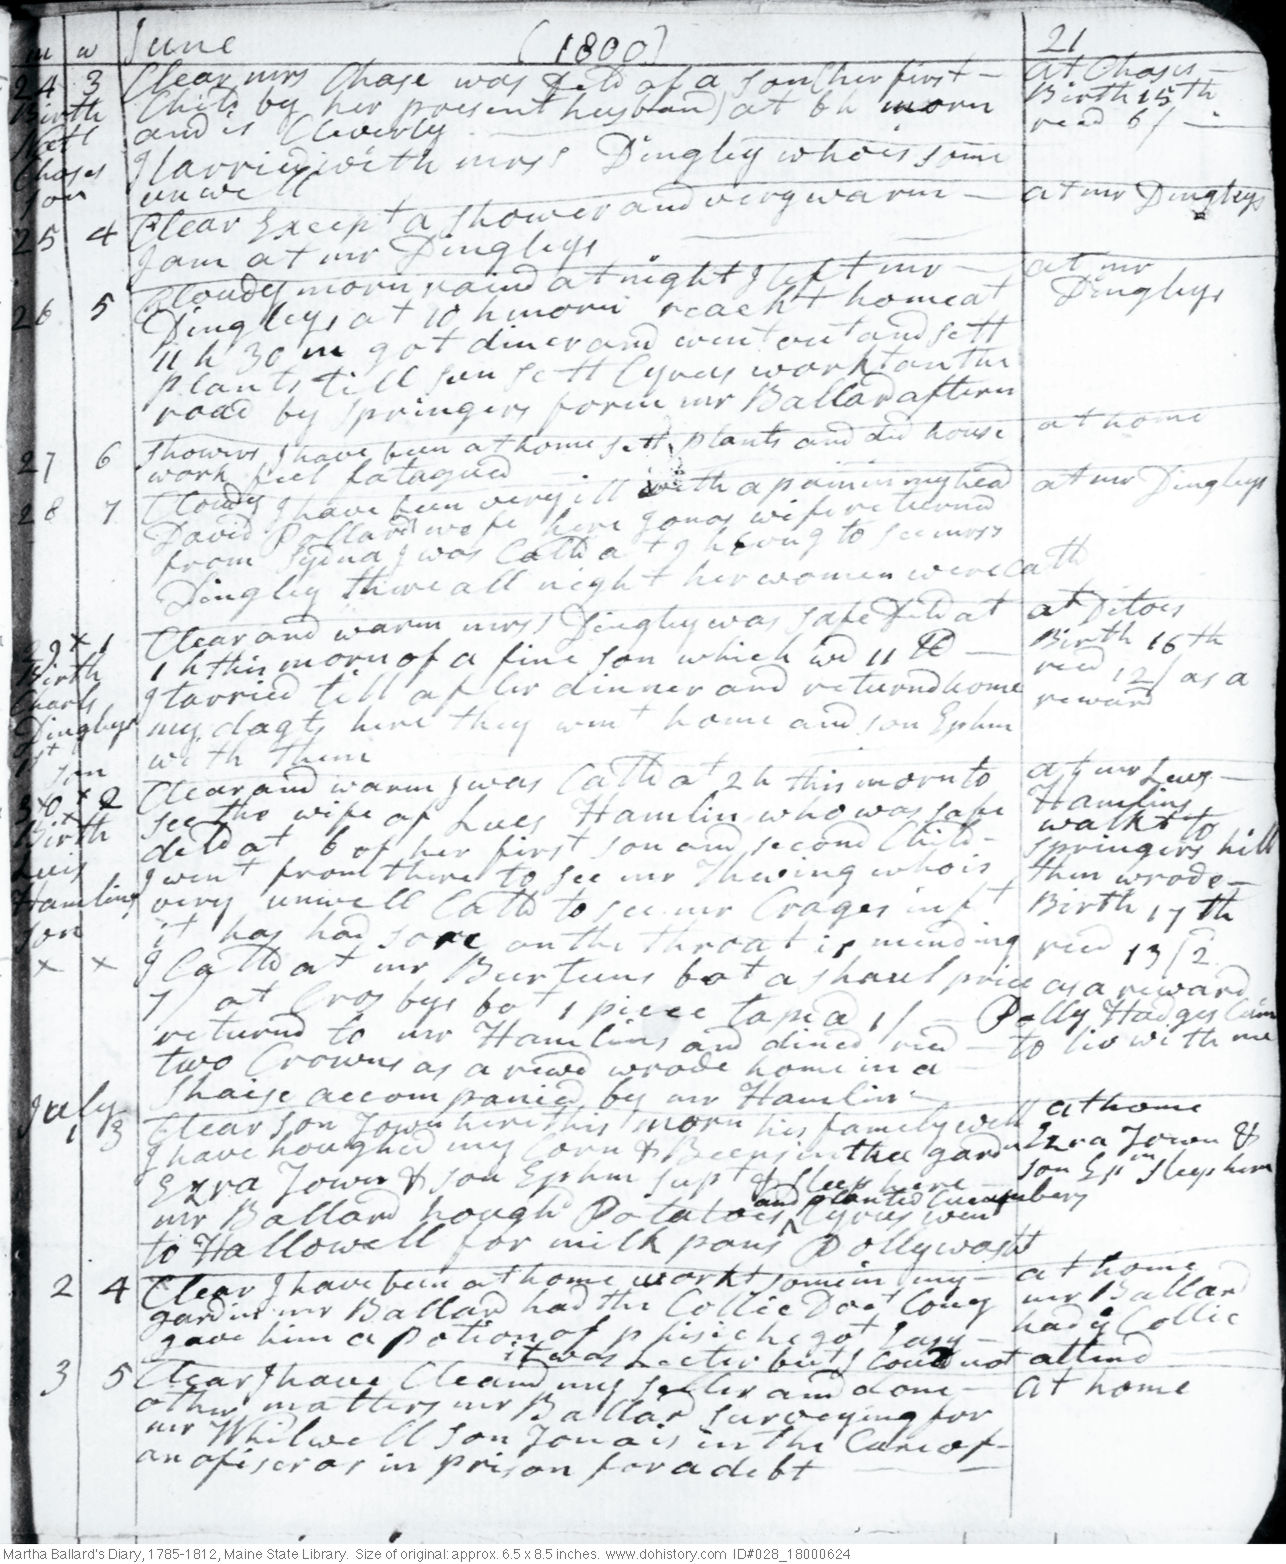 m w June (1800) 21
24 3 Clear mrs Chase was deld of a son (her first - at Chases -
Birth Child by her present husband) at 6 h morn Birth 15th
and is Cleverly recd 6/ -
Chases I tarried with mrss Dingley who is some
son unwell
25 4 Clear Except a shower and very warm - at mr Dingleys
I am at mr Dingleys
26 5 Cloudy morn, raind at night I left mr - at mr
Dingleys at 10 h morn reacht home at Dingleys
11 h 30 m got diner and went out and sett
plants till sun sett Cyrus workt on the
road by Springers for mr Ballard aftern
27 6 showers I have been at home sett plants and did house at home
work feel fatagued
28 7 Cloudy I have been very ill with a pain in my head at mr Dingleys
David Pollard wife here Jonas wife returnd
from Sydna I was Calld at 9 h Evng to see mrss
Dingley there all night her women were calld
29 x 1 Clear and warm mrss Dingley was safe delld at at Ditoes
Birth 1 h this morn of a fine son which wd 11 lb - Birth 16th
Charls I tarried till after dinner and returnd home recd 12/ as a
Dingleys my dagts here they went home and son Ephm reward
1st son with them
30 x 2 Clear and warm I was Calld at 2 h this morn to at mr Lues -
x see the wife of Lues Hamlin who was safe Hamlins
Birth delld at 6 of her first son and second Child - walkt to
Luis I went from there to see mr Theving who is springers hill
Hamlins very unwell Calld to see mr Crages inft then wrode -
son it has had sore on the throat is mending Birth 17th
x x I Calld at mr Burtuns bot a shaul price recd 13/2
7/ at Crosbys bot 1 piece tape a 1/ - as a reward
returnd to mr Hamlins and dined recd - Polly Hadges Came
two Crowns as a rewd wrode home in a - to liv with me
shaise accompanied by mr Hamlin -
July
1 3 Clear son Town here this morn his family well at home
I have houghed my Corn & Beens in thee gardn Ezra Town &
Ezra Town & son Ephm supt & sleep here - son Epm sleep here
and planted Cucumbers
mr Ballard hough Potatoes, Cyrus went
to Hallowell for milk pans Polly washt
2 4 Clear I have been at home workt some in my - at home
gardin mr Ballard had the Collic Doct Cony mr Ballard
gave him a potion of phisic he got Easy - had ye Collic
it was Lecter but I coud not attend
3 5 Clear I have Cleand my seller and done - at home
other matters mr Ballard surveying for
mr Whitwell son Jona is in the Care of -
an ofiser or in prison for a debt
Martha Ballard's Diary, 1785-1812, Maine State Library. Size of original: approx. 6.5 x 8.5 inches. www.dohistory.com ID#028_18000624